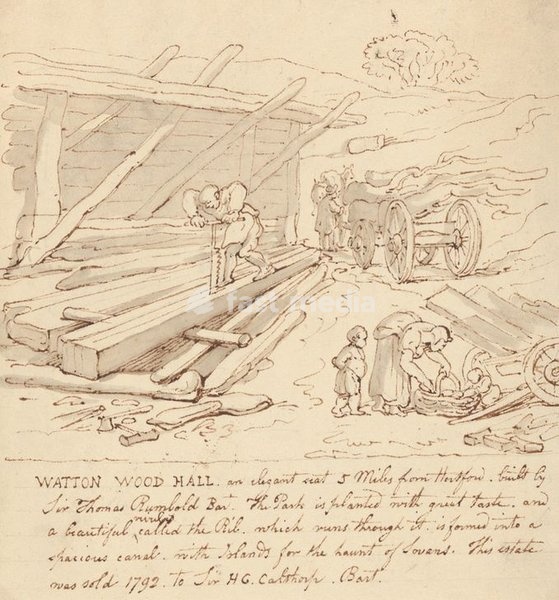 fast media
WATTON WOOD HALL. an elegant seat 5 Miles from Hertford. built by
Sir Thomas Rumbold Bart. The Park is planted with great taste. and
a beautiful river called the Rib. which runs through it. is formed into a
spacious canal. with Islands for the haunt of Swans. This estate
was sold 1792. To Sir H G. Calthorp. Bart.